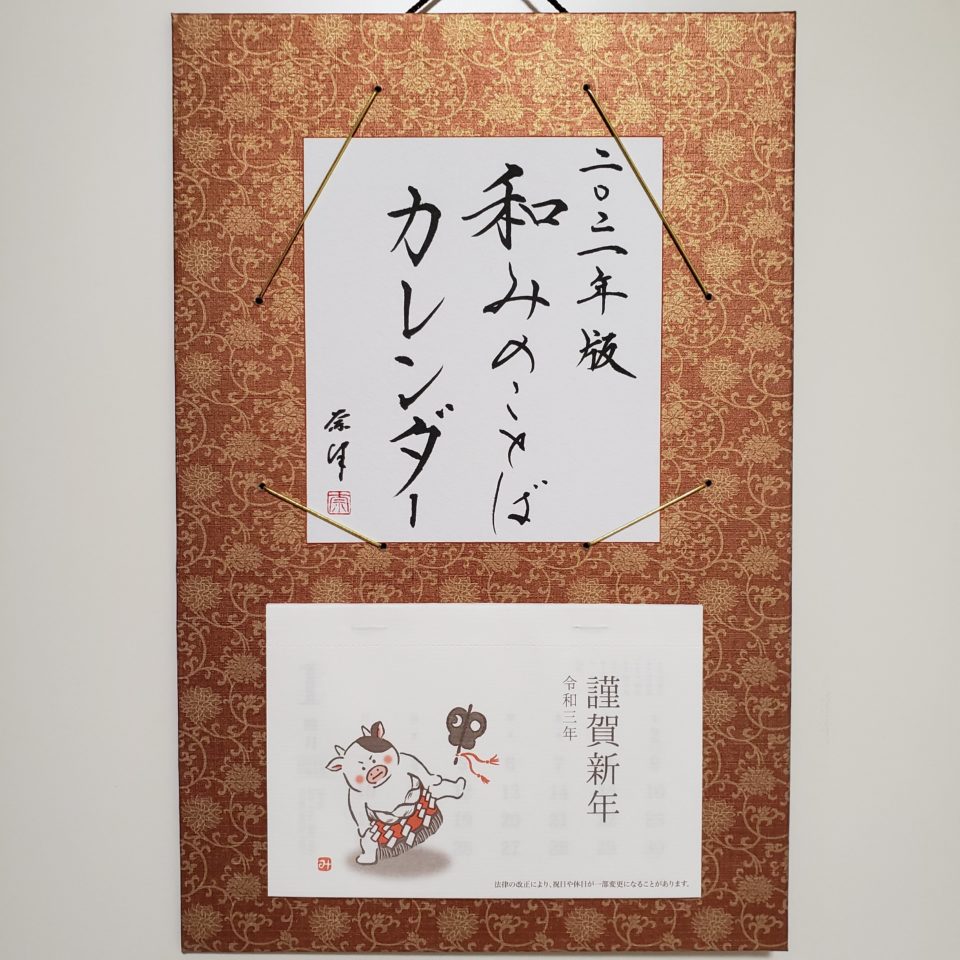 二〇二一年版
和みのことば
カレンダー
奈津
謹賀新年
令和三年
み
法律の改正により、祝日や休日が一部変更になることがあります。